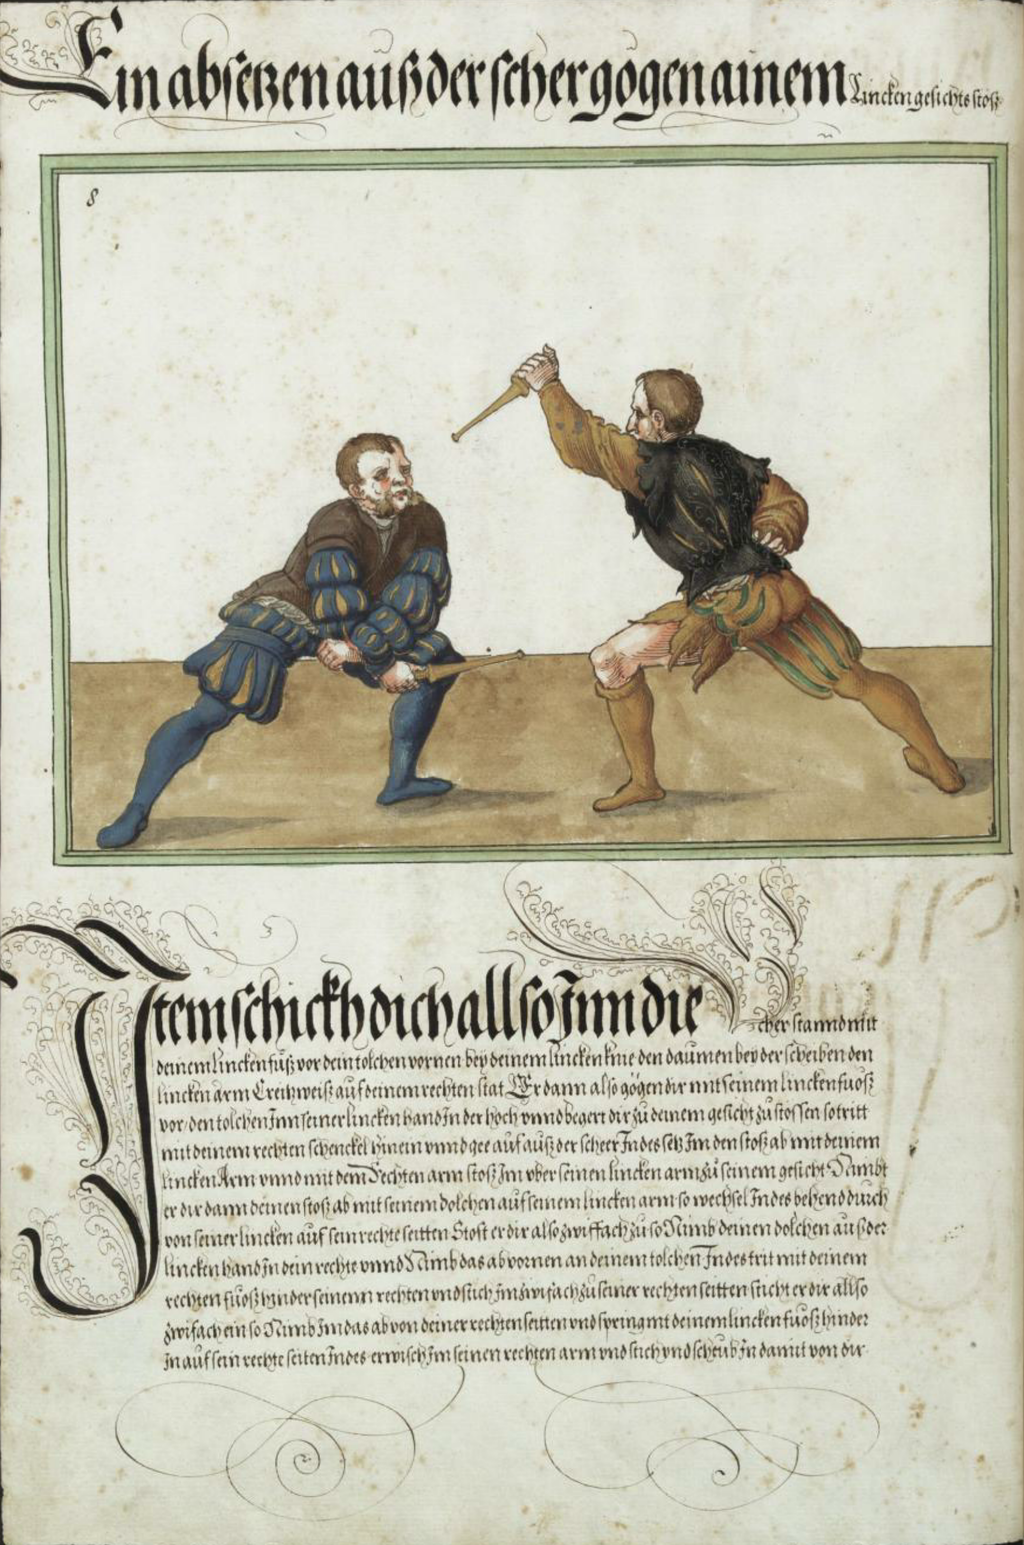 Ein absetzen auß der scher gögen ainem Lincken gesichts stosz
8
Item schickh dich allso Inn die Scher stannd mit
deinem lincken fůß vor dein tolchen vornen bey deinem lincken knie den daumen bey der scheiben den
lincken arm Creitzweiß auf deinem rechten stat Er dann also gögen dir mit seinem lincken fuosz
vor, den tolchen Inn seiner lincken hand In der hoch vnnd begert dir zů deinem gesicht zů stossen so tritt
mit deinem rechten schenckel hinein vnnd gee auf auß der scheer Indes setz Im den stosz ab mit deinem
lincken Arm vnnd mit dem Rechten arm stosz Im vber seinen lincken arm zů seinem gesicht Nimbt
er dir dann deinen stosz ab mit seinem dolchen auf seinem lincken arm so wechsel Indes behend durch
von seiner lincken auf sein rechte seitten Stost er dir also zwiffach zů so Nimb deinen dolchen auß der
lincken hand In dein rechte vnnd Nimb das ab vornen an deinem tolchen Indes trit mit deinem
rechten fuosz hinder seinenn rechten vnd stich Im zwifach zů seiner rechten seitten sticht er dir allso
zwifach ein so Nimb Im das ab von deiner rechten seitten vnd spring mit deinem lincken fuosz hinder
In auf sein rechte seiten Indes erwisch Im seinen rechten arm vnd stich vnd scheub In damit von dir